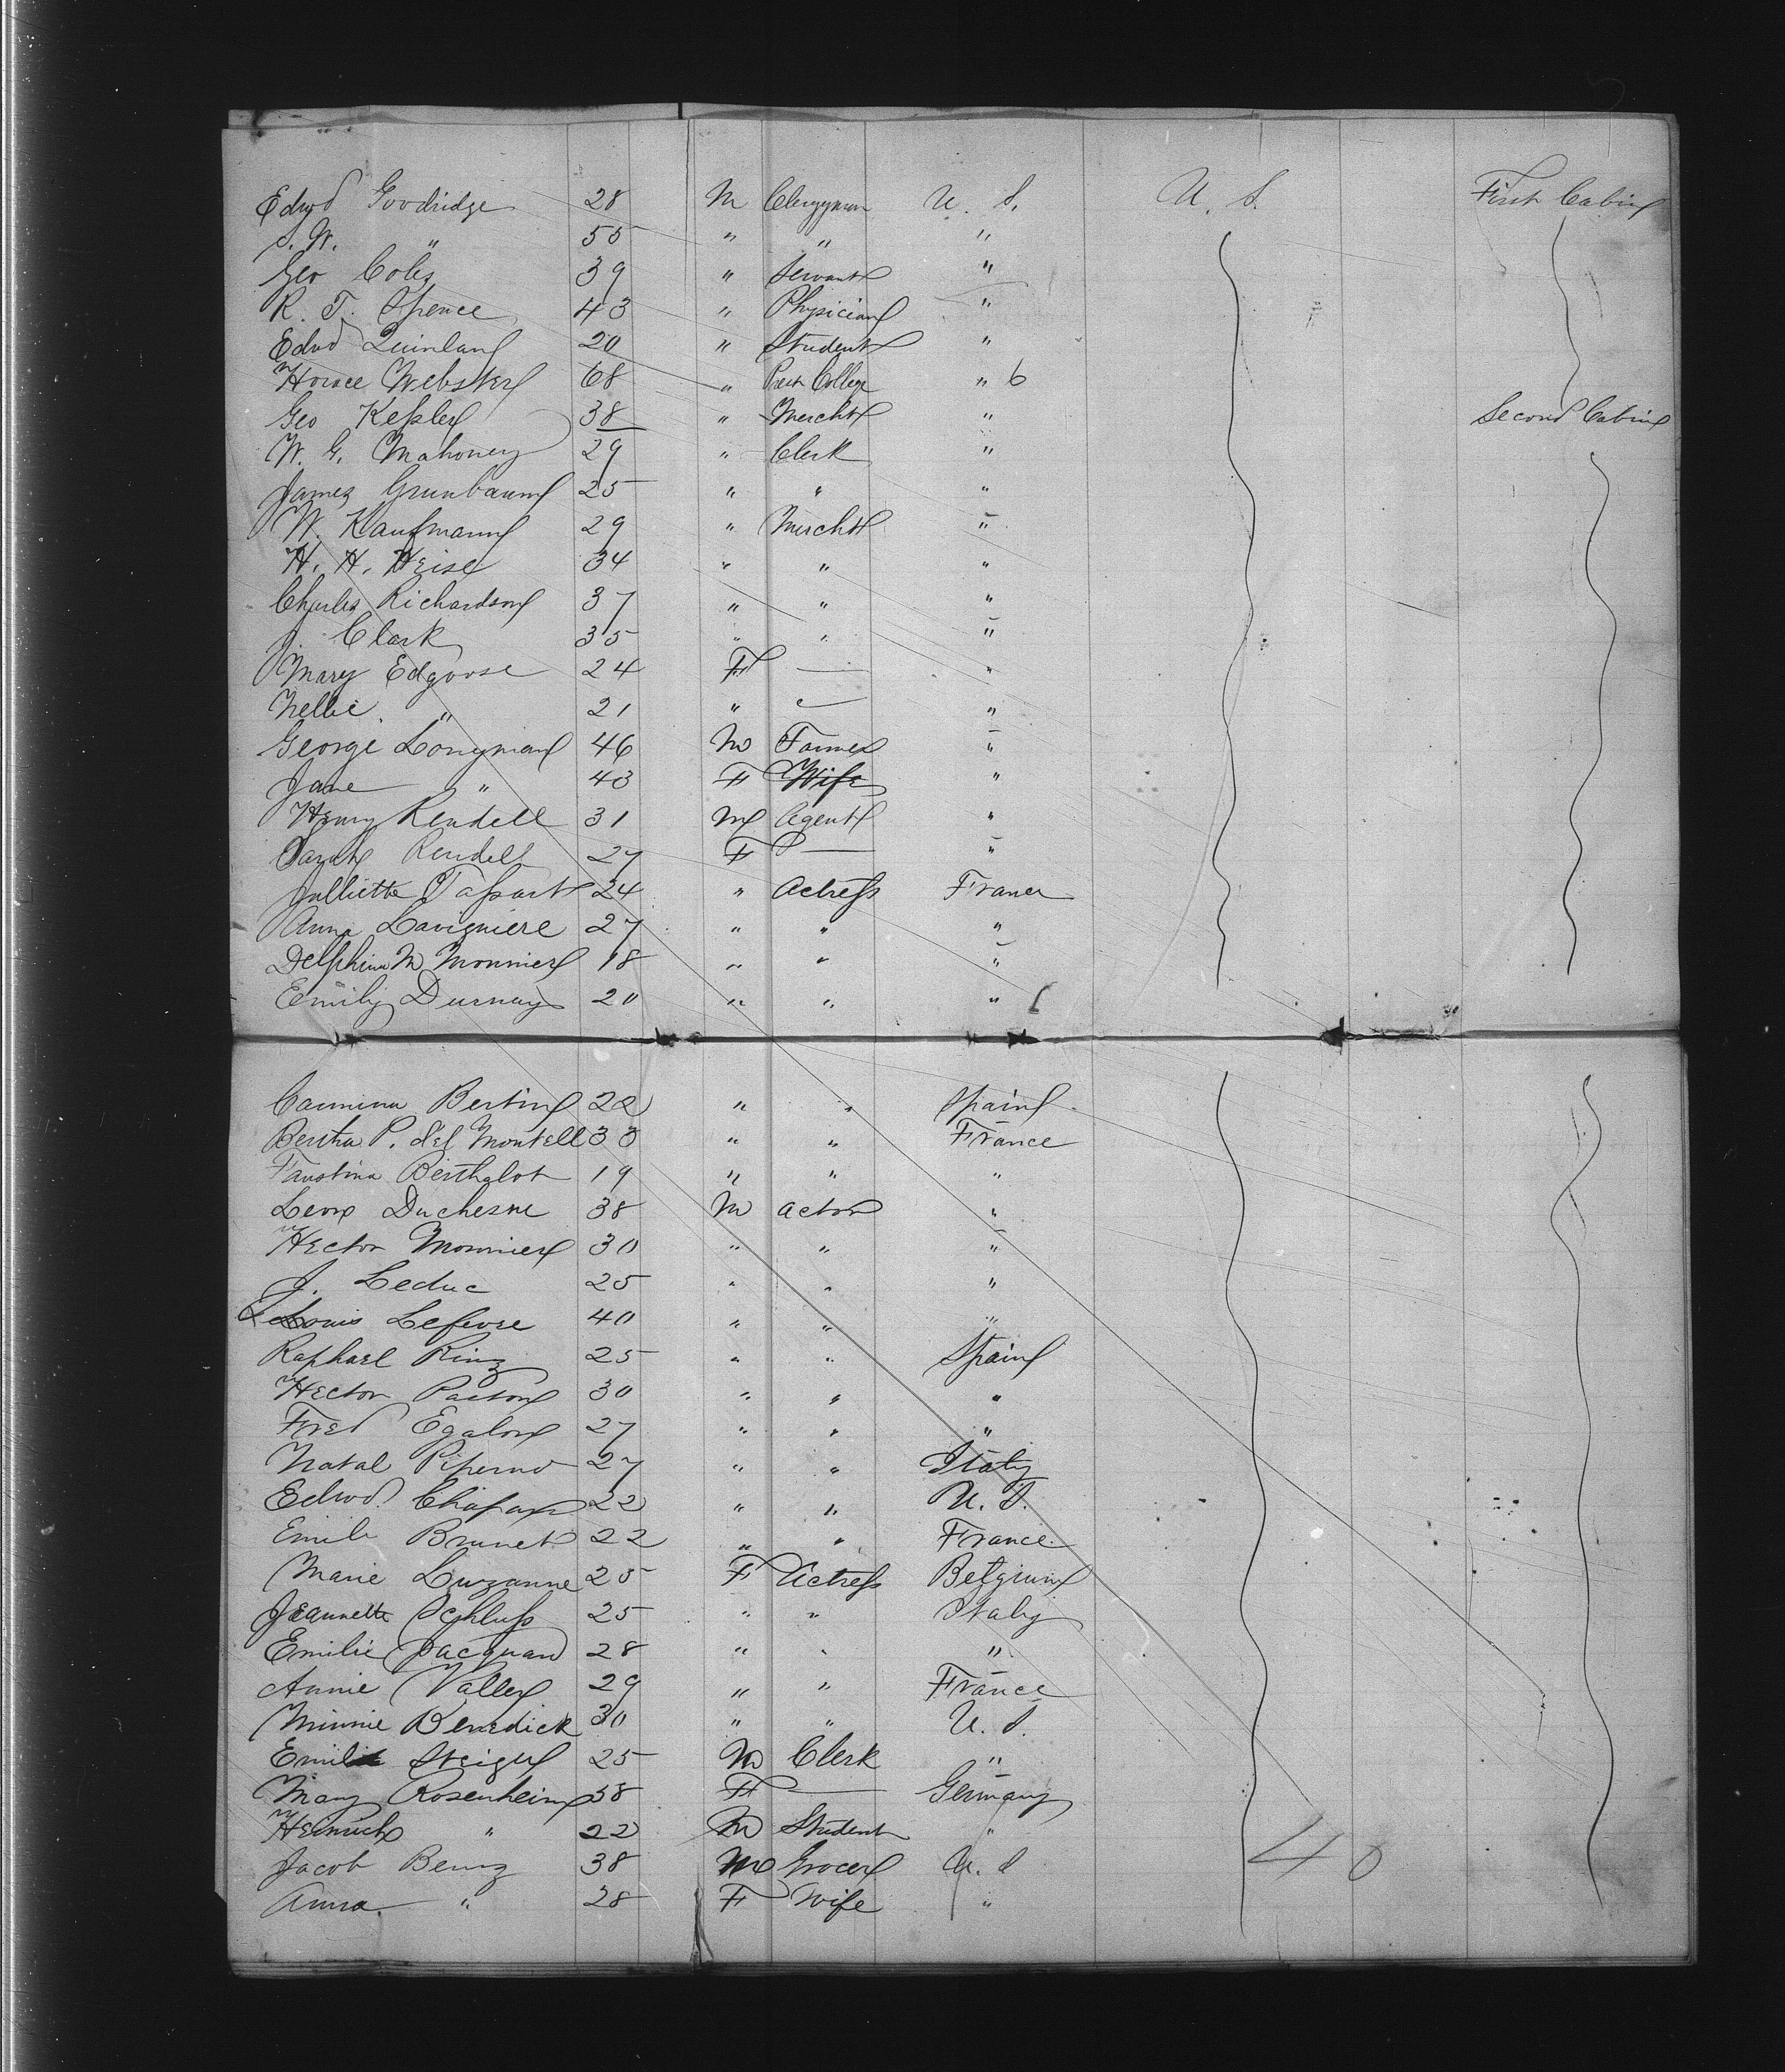 Edwd Goodridge 28 M Clergyman U. S. U. S. First Cabin
S. W. " 55 " " "
Geo Coles 39 " Servant "
R. T. Spence 43 " Physician "
Edwd Quinlan 20 " Student "
Horace Webster 68 " Prest College " 6
Geo Kessler 38 " Mercht " Second Cabin
W. G. Mahoney 29 " Clerk "
James Grunbaum 25 " " "
W. Kaufmann 29 " Mercht "
H. H. Heise 34 " " "
Charles Richardson 37 " " "
J. Clark 35 " " "
Mary Edgoose 24 F — "
Nellie " 21 " — "
George Longman 46 M Farmer "
Jane " 43 F Wife "
Henry Rendell 31 M Agent "
Sarah Rendell 27 F — "
Julliette Tassart 24 " Actress France
Anna Lavigniere 27 " " "
Delphine M Monnier 18 " " "
Emily Durnay 20 " " "
Bertin 22 " " Spain
Bertha P. del Montell 33 " " France
Faustina Berthelot 19 " " "
Leon Duchesne 38 M Actor "
Hector Monnier 30 " " "
J. Leduc 25 " " "
Louis Lefevre 40 " " "
Raphael Ring 25 " " Spain
Hector Paston 30 " " "
Fred Egalon 27 " " "
Natal Piperno 27 " " Italy
Edwd. 22 " " U. S.
Emile Brunet 22 " " France
Marie Luzanne 25 F Actress Belgium
Jeannette Schluss 25 " " Italy
Emilie Jacquan 28 " " "
Annie Valler 29 " " France
Minnie Benedick 30 " " U. S.
Emil Steigel 25 M Clerk "
Mary Rosenheim 58 F — Germany
Heinrich " 22 M Student "
Jacob Benz 38 M Grocer U. S 40
Anna " 28 F Wife "